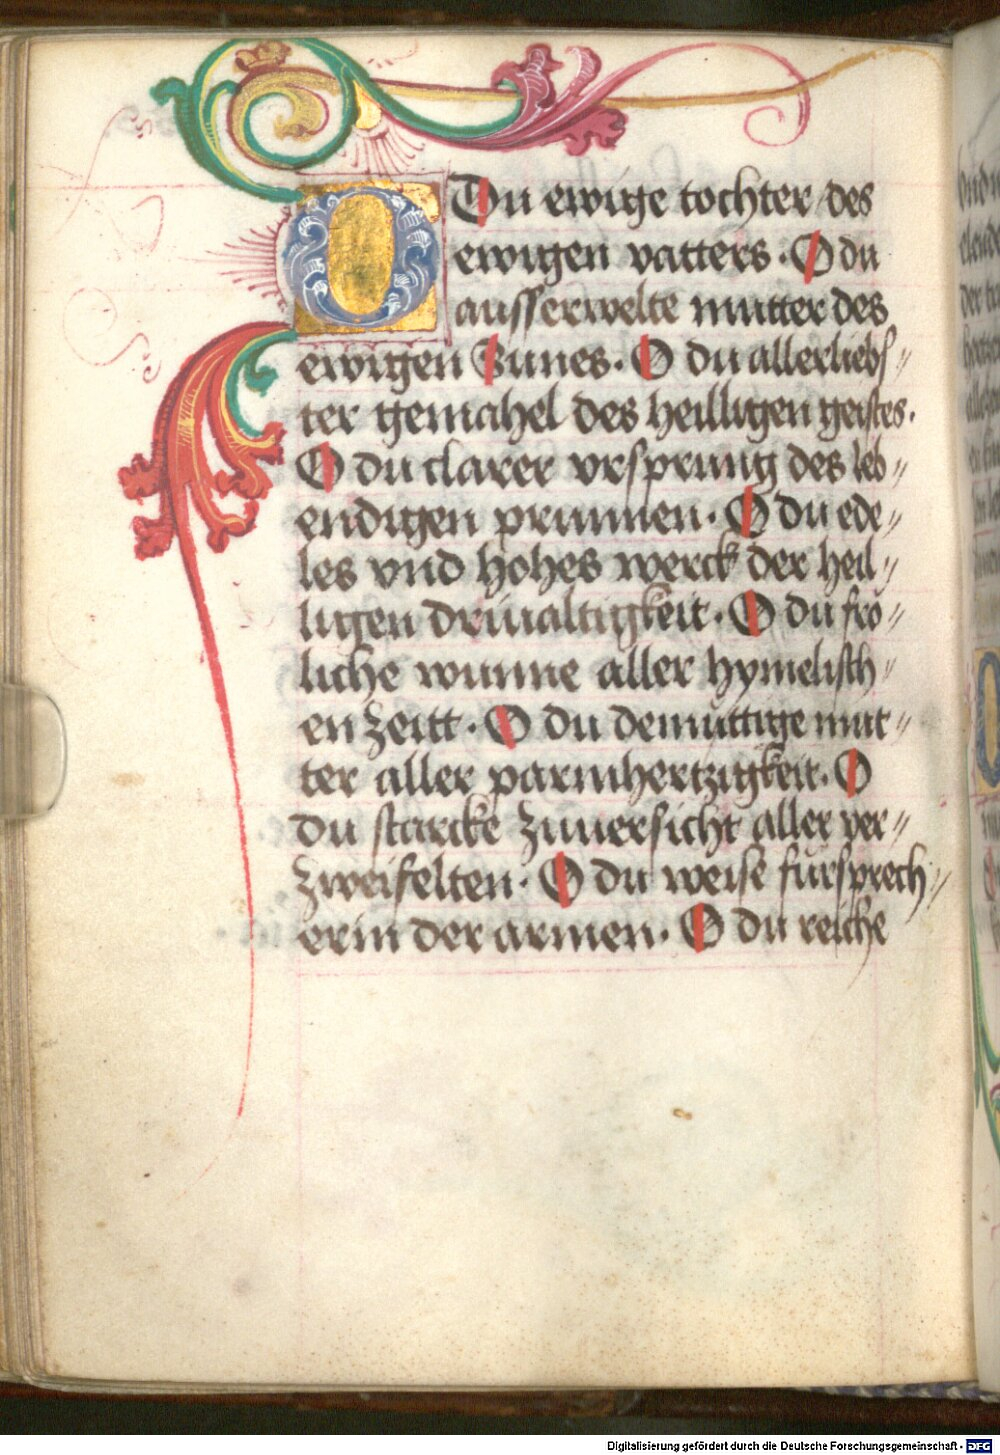 O Du ewige tochter des
ewigen vatters · O du
ausserwelte mutter des
ewigen Sunes · O du allerliebs //
ter gemahel des heilligen geistes ·
O du clarer vrsprung des leb //
endigen prunnen · O du ede //
les vnd hohes werck der heil //
ligen driualtigkeit · O du frö //
liche wunne aller hymelisch //
en zeitt · O du demüttige mut //
ter aller parmhertzigkeit · O
du starcke zuuersicht aller ver //
zweifelten · O du weise fürsprech //
erin der armen · O du reiche
Digitalisierung gefördert durch die Deutsche Forschungsgemeinschaft - DFG